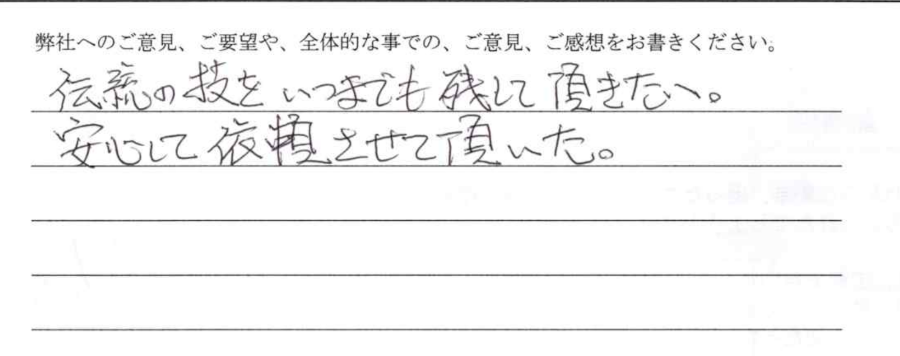 弊社へのご意見、ご要望や、全体的な事での、ご意見、ご感想をお書きください。
伝統の技をいつまでも残して頂きたい。
安心して依頼させて頂いた。